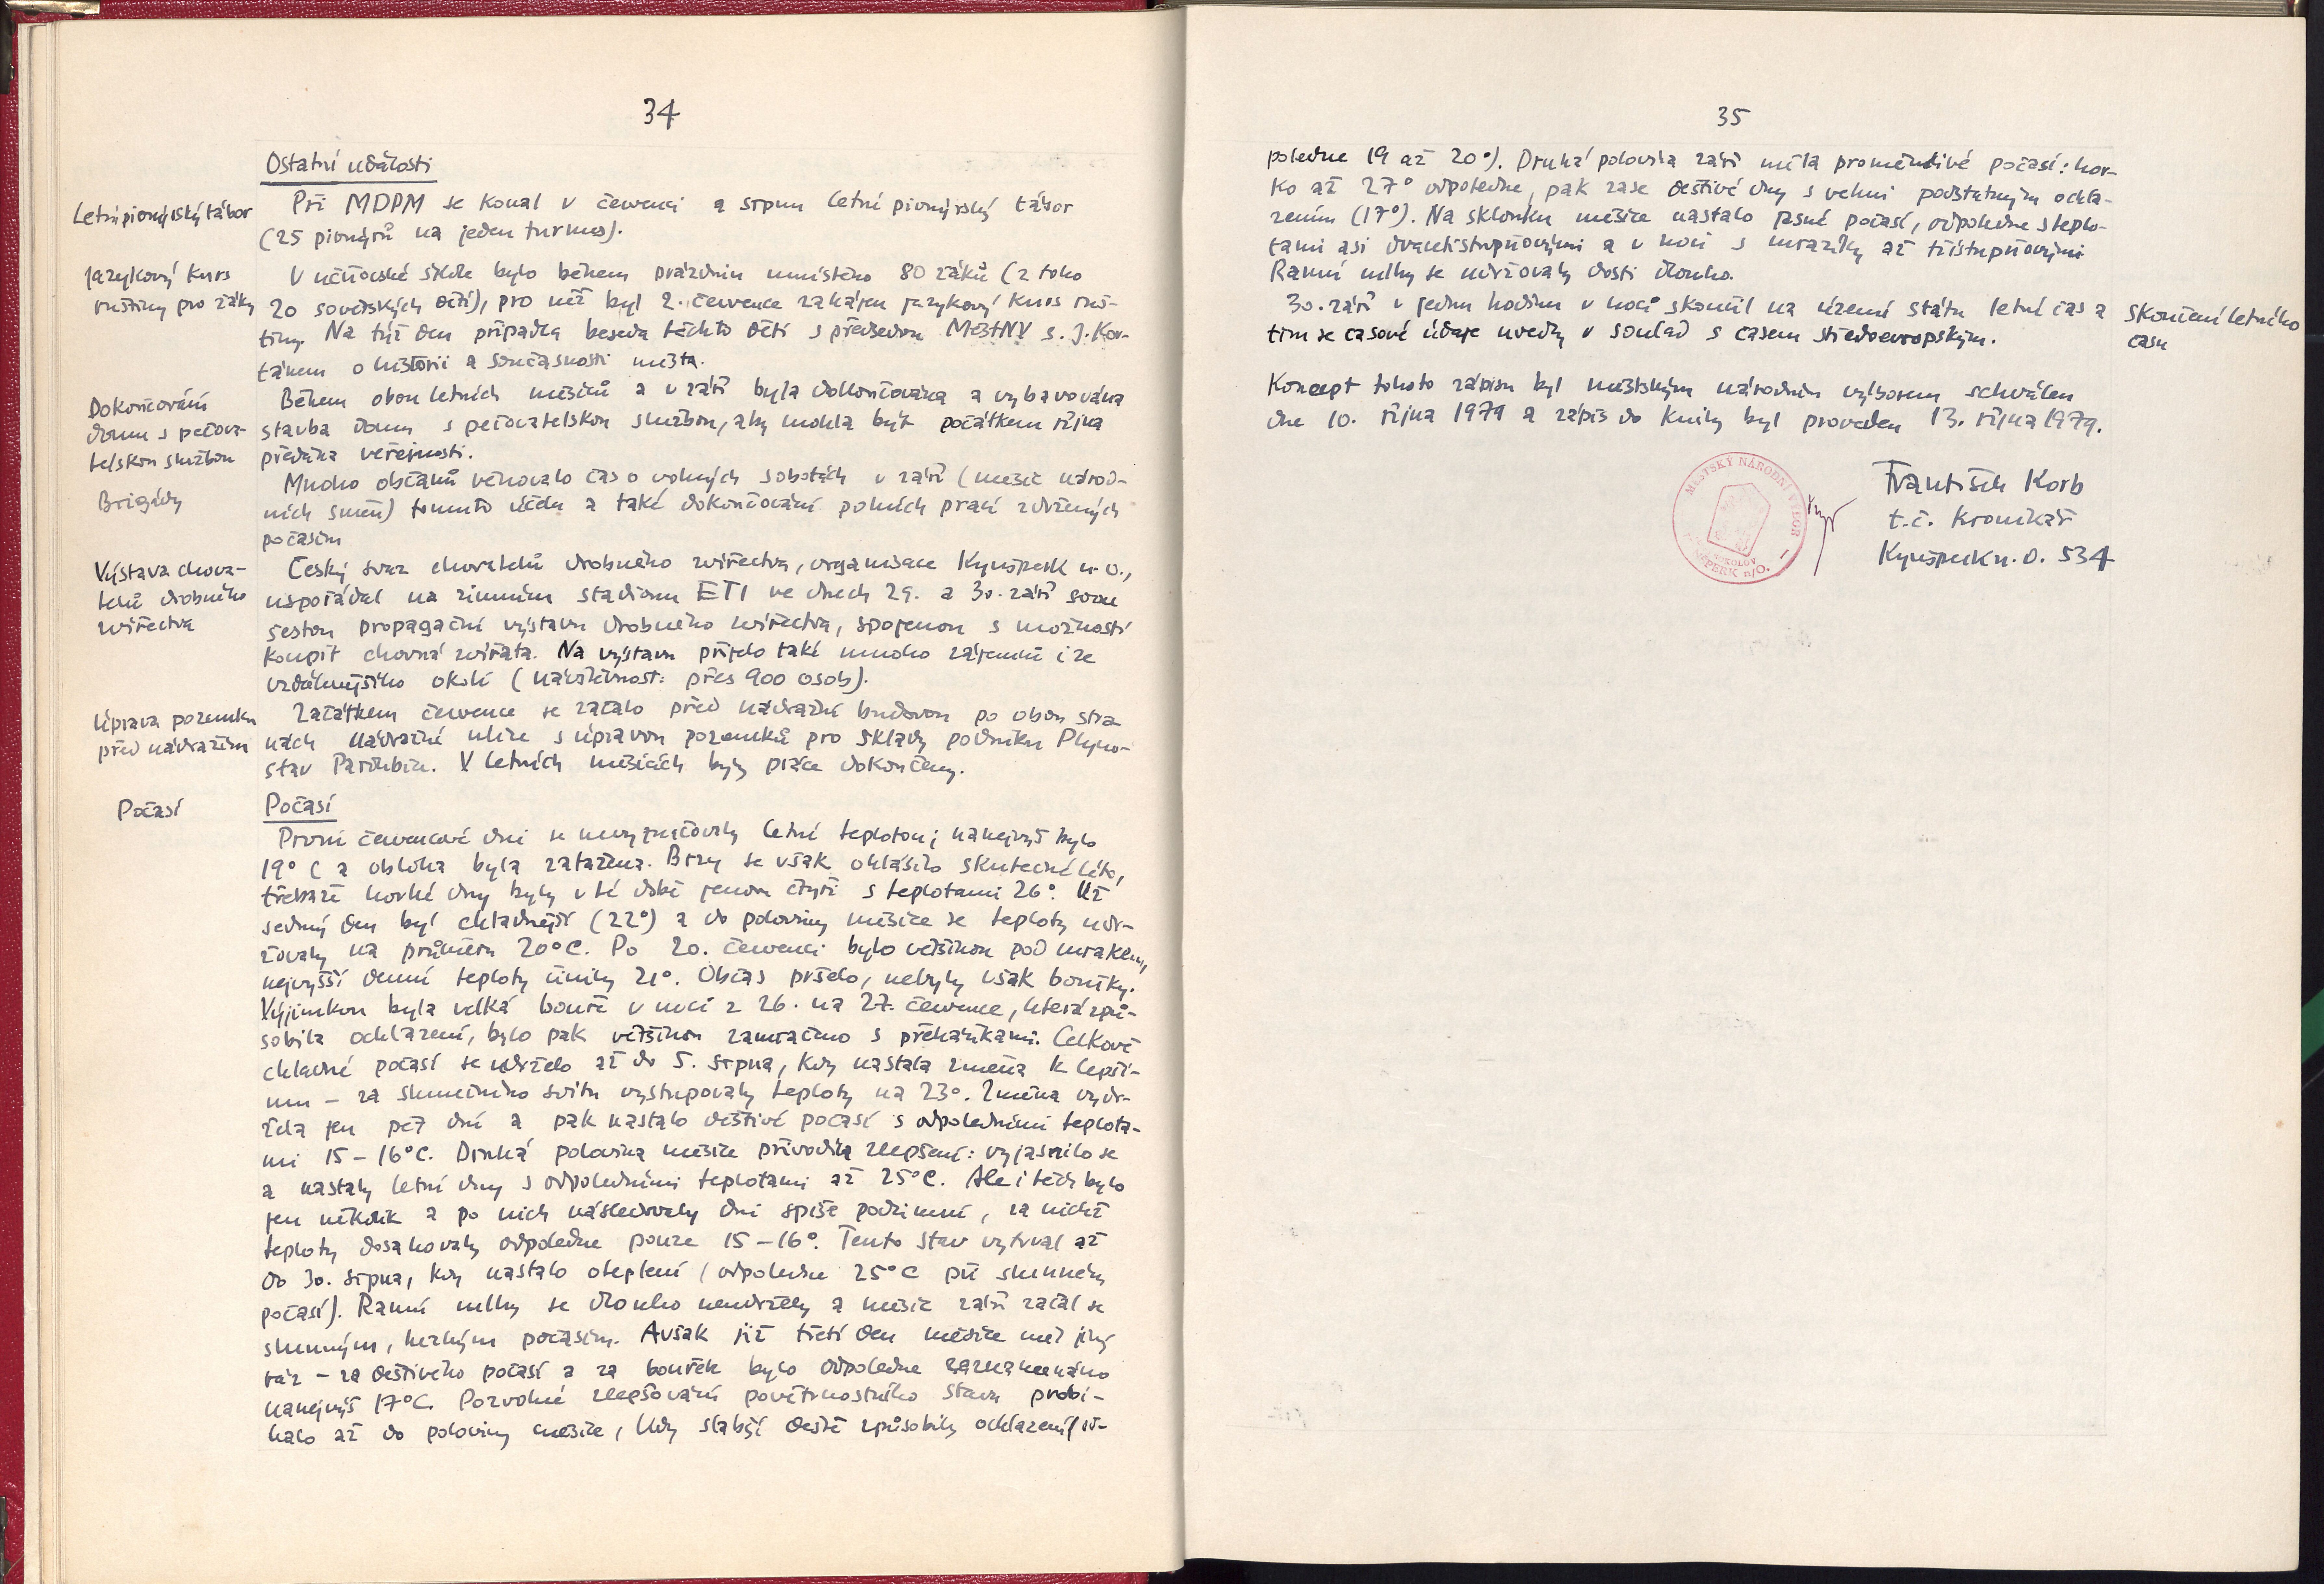 34
Ostatní události
Letní pionýrský tábor
Při MDPM se konal v červenci a srpnu letní pionýrský tábor
(25 pionýrů na jeden turnus).
Jazykový kurs
ruštiny pro žáky
V učňovské škole bylo během prázdnin umístěno 80 žáků (z toho
20 sovětských dětí), pro něž byl 2. července zahájen jazykový kurs ruš-
tiny. Na týž den připadla beseda těchto dětí s předsedou MěstNV s. J. Kor-
tánem o historii a současnosti města.
Dokončování
domu s pečova-
telskou službou
Během obou letních měsíců a v září byla dokončována a vybavována
stavba domu s pečovatelskou službou, aby mohla být počátkem října
předána veřejnosti.
Brigády
Mnoho občanů věnovalo čas o volných sobotách v září (měsíc národ-
ních směn) tomuto účelu a také dokončování polních prací zdržených
počasím
Výstava chova-
telů drobného
zvířectva
Český svaz chovatelů drobného zvířectva, organisace Kynšperk n. O.,
uspořádal na zimním stadionu ETI ve dnech 29. a 30. září svou
šestou propagační výstavu drobného zvířectva, spojenou s možností
koupit chovná zvířata. Na výstavu přijelo také mnoho zájemců i ze
vzdálenějšího okolí (návštěvnost: přes 900 osob).
Úprava pozemku
před nádražím
Začátkem července se začalo před nádražní budovou po obou stra-
nách Nádražní ulice s úpravou pozemků pro sklady podniku Plyno-
stav Pardubice. V letních měsících byly práce dokončeny.
Počasí
Počasí
První červencové dni se nevyznačovaly letní teplotou; nanejvýš bylo
19° C a obloha byla zatažena. Brzy se však ohlásilo skutečné léto,
třebaže horké dny byly v té době jenom čtyři s teplotami 26°. Už
sedmý den byl chladnější (22°) a do poloviny měsíce se teploty udr-
žovaly na průměru 20°C. Po 20. červenci bylo většinou pod mrakem,
nejvyšší denní teploty činily 21°. Občas pršelo, nebyly však bouřky.
Výjimkou byla velká bouře v noci z 26. na 27. července, která způ-
sobila ochlazení, bylo pak většinou zamračeno s přeháňkami. Celkově
chladné počasí se udrželo až do 5. srpna, kdy nastala změna k lepší-
mu – za slunečního svitu vystupovaly teploty na 23°. Změna vydr-
žela jen pět dní a pak nastalo deštivé počasí s odpoledními teplota-
mi 15 – 16°C. Druhá polovina měsíce přivodila zlepšení: vyjasnilo se
a nastaly letní dny s odpoledními teplotami až 25°C. Ale i těch bylo
jen několik a po nich následovaly dni spíše podzimní, za nichž
teploty dosahovaly odpoledne pouze 15 – 16°. Tento stav vytrval až
do 30. srpna, kdy nastalo oteplení (odpoledne 25°C při slunném
počasí). Ranní mlhy se dlouho neudržely a měsíc září začal se
slunným, hezkým počasím. Avšak již třetí den měsíce měl jiný
ráz – za deštivého počasí a za bouřek bylo odpoledne zaznamenáno
nanejvýš 17°C. Pozvolné zlepšování povětrnostního stavu probí-
halo až do poloviny měsíce, kdy slabší deště způsobily ochlazení (od-
35
poledne 19 až 20°). Druhá polovina září měla proměnlivé počasí: hor-
ko až 27° odpoledne, pak zase deštivé dny s velmi podstatným ochla-
zením (17°). Na sklonku měsíce nastalo jasné počasí, odpoledne s teplo-
tami asi dvacetistupňovými a v noci s mrazíky až třístupňovými
Ranní mlhy se udržovaly dosti dlouho.
30. září v jednu hodinu v noci skončil na území státu letní čas a
tím se časové údaje uvedly v soulad s časem středoevropským.
Skončení letního
času
Koncept tohoto zápisu byl městským národním výborem schválen
dne 10. října 1979 a zápis do knihy byl proveden 13. října 1979.
MĚSTSKÝ NÁRODNÍ VÝBOR
SOKOLOV
KYNŠPERK n/O.
František Korb
t.č. kronikář
Kynšperk n. O. 534